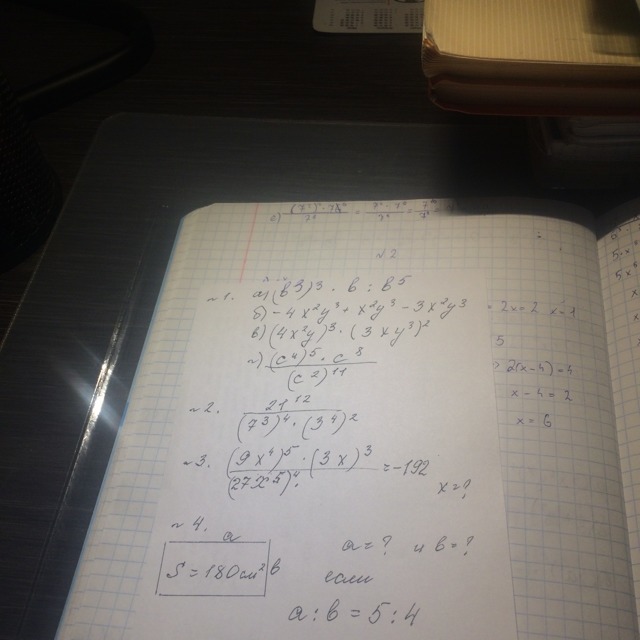 N 2
~1. а) (b3)³ · b : b5
б) -4x²y³ + x²y³ - 3x²y³
в) (4x²y)³ · (3xy³)²
г) (c⁴)⁵ · c³ / (c²)¹¹
~2. 21¹² / (7³)⁴ · (3⁴)²
~3. (9x⁴)⁵ · (3x)³ / (27x⁵)⁴ = -192
x = ?
~4. a
S = 180 см² b
a = ? и b = ?
если
a : b = 5 : 4
= 2x = 2 x = 1
5
2(x-4) = 4
x - 4 = 2
x = 6